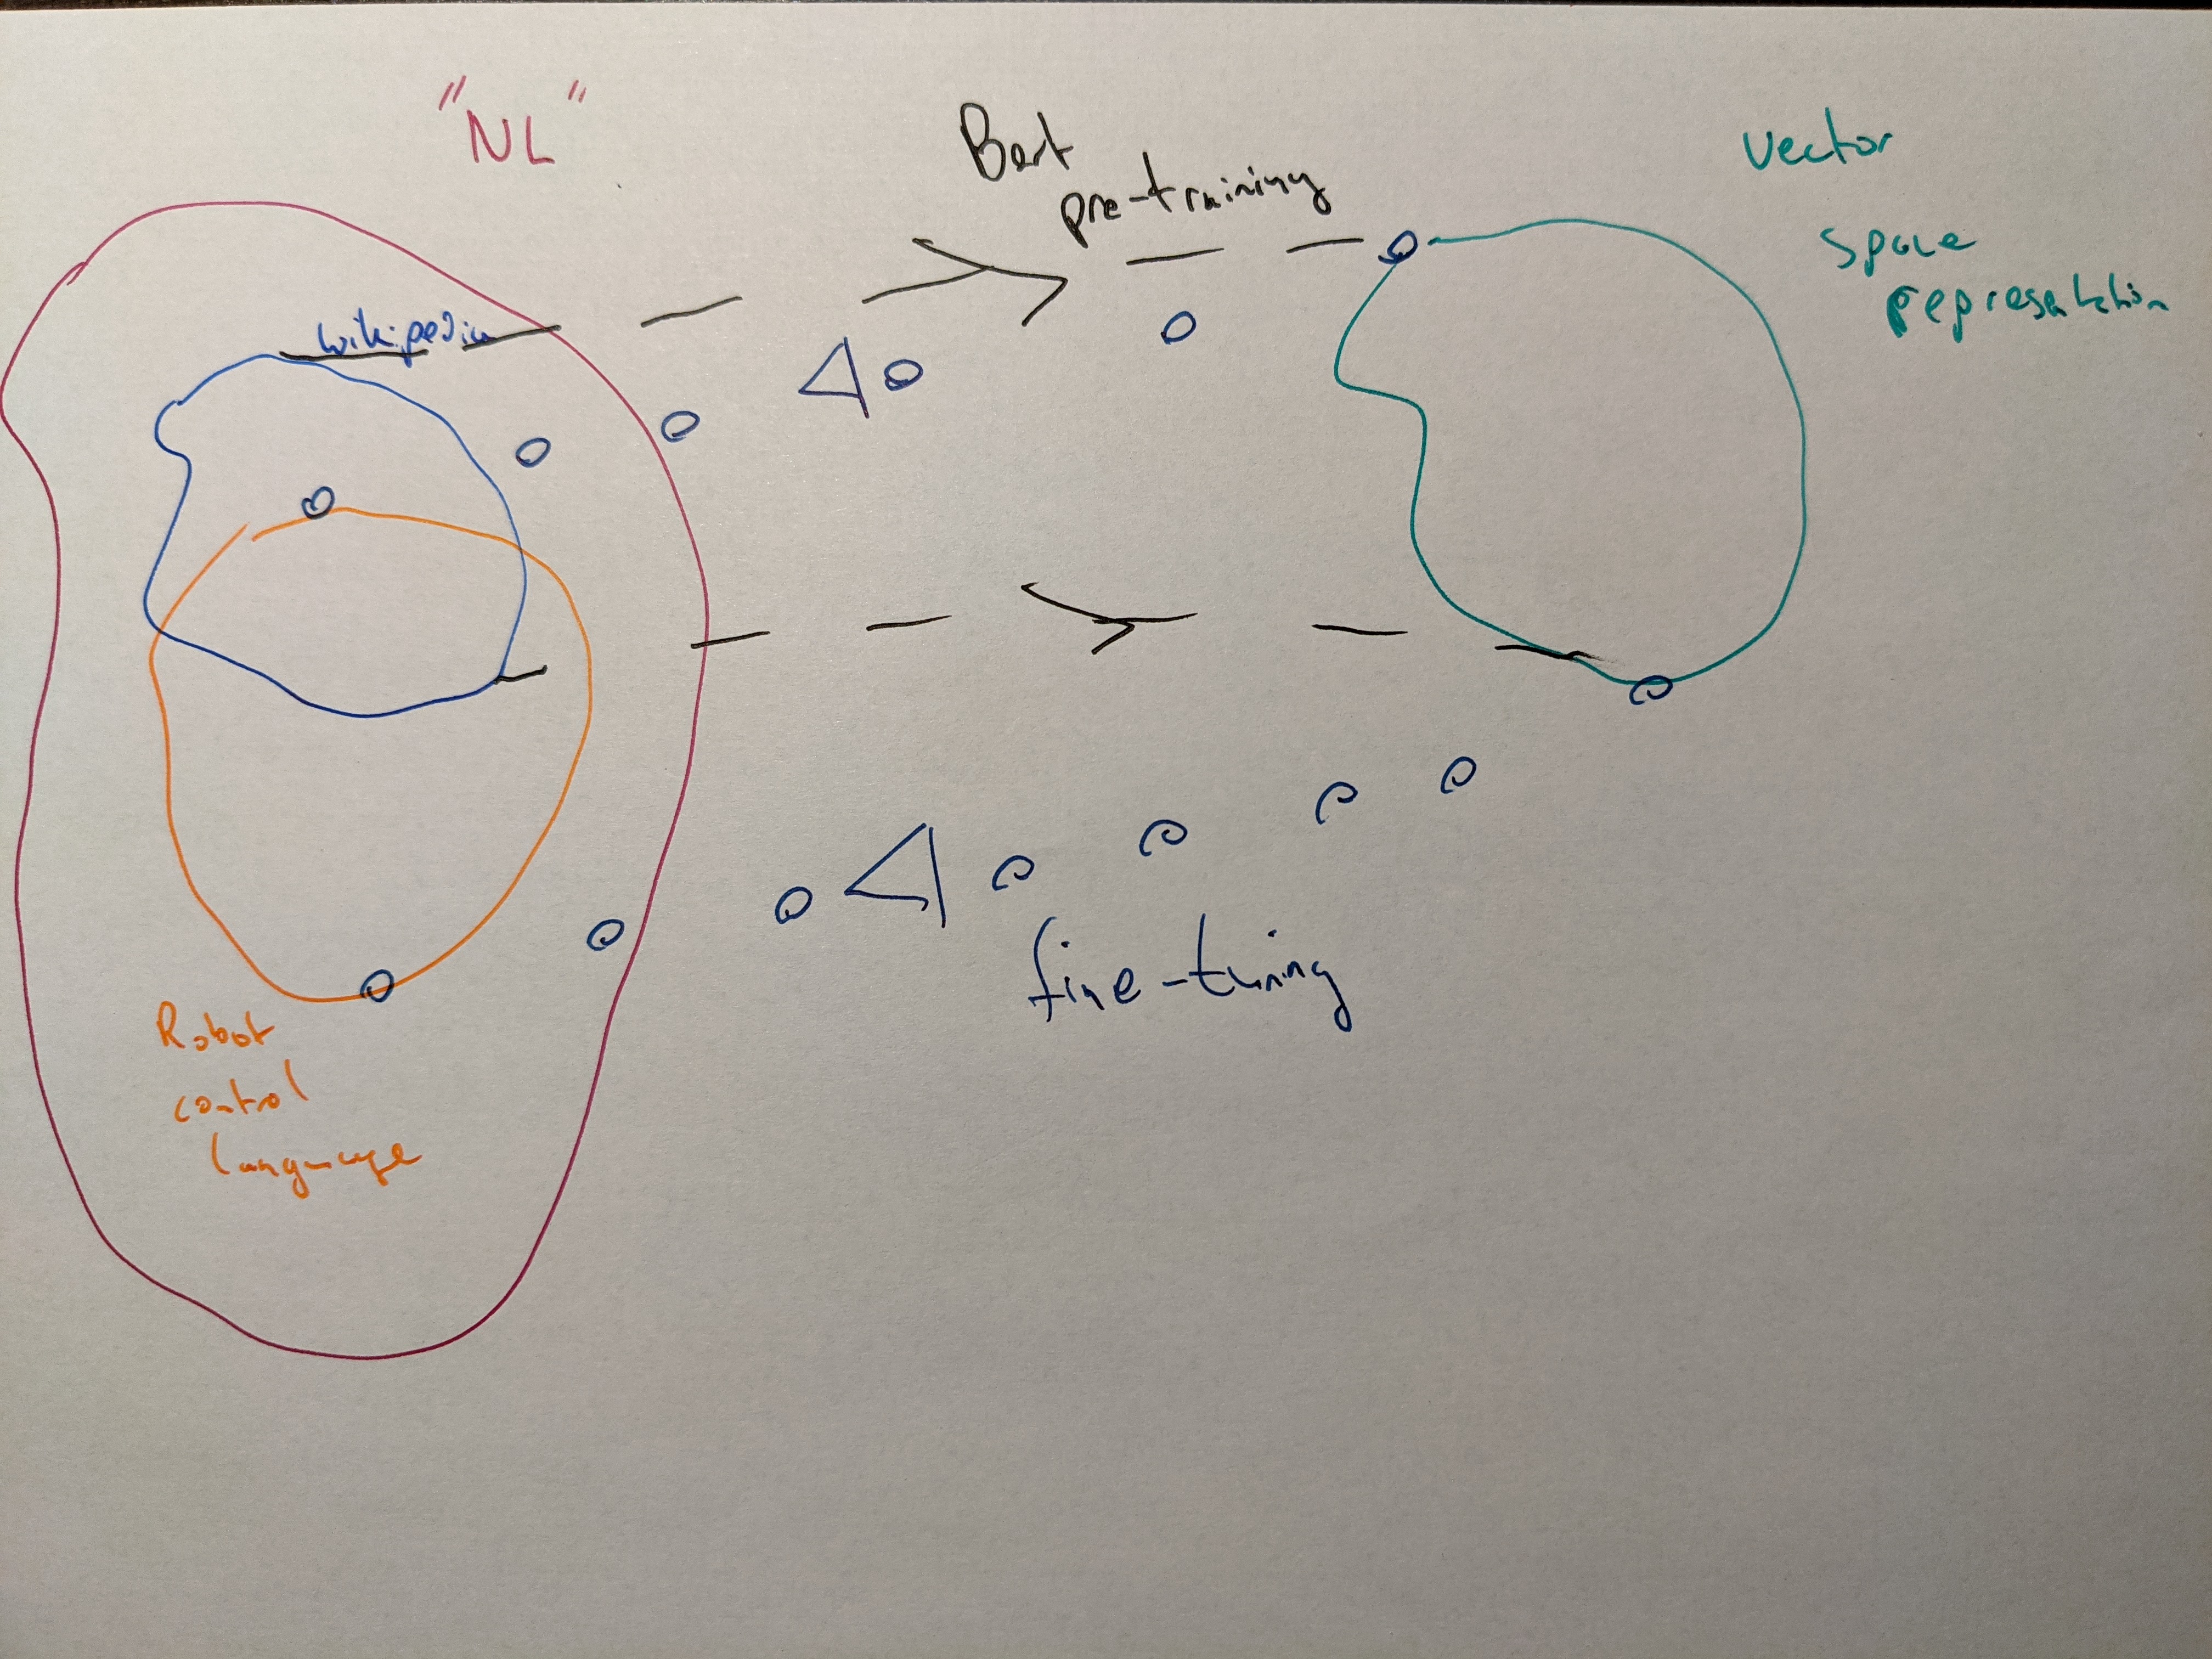 "NL"
Bert
pre-training
vector
space
representation
wikipedia
fine-tuning
Robot
control
language